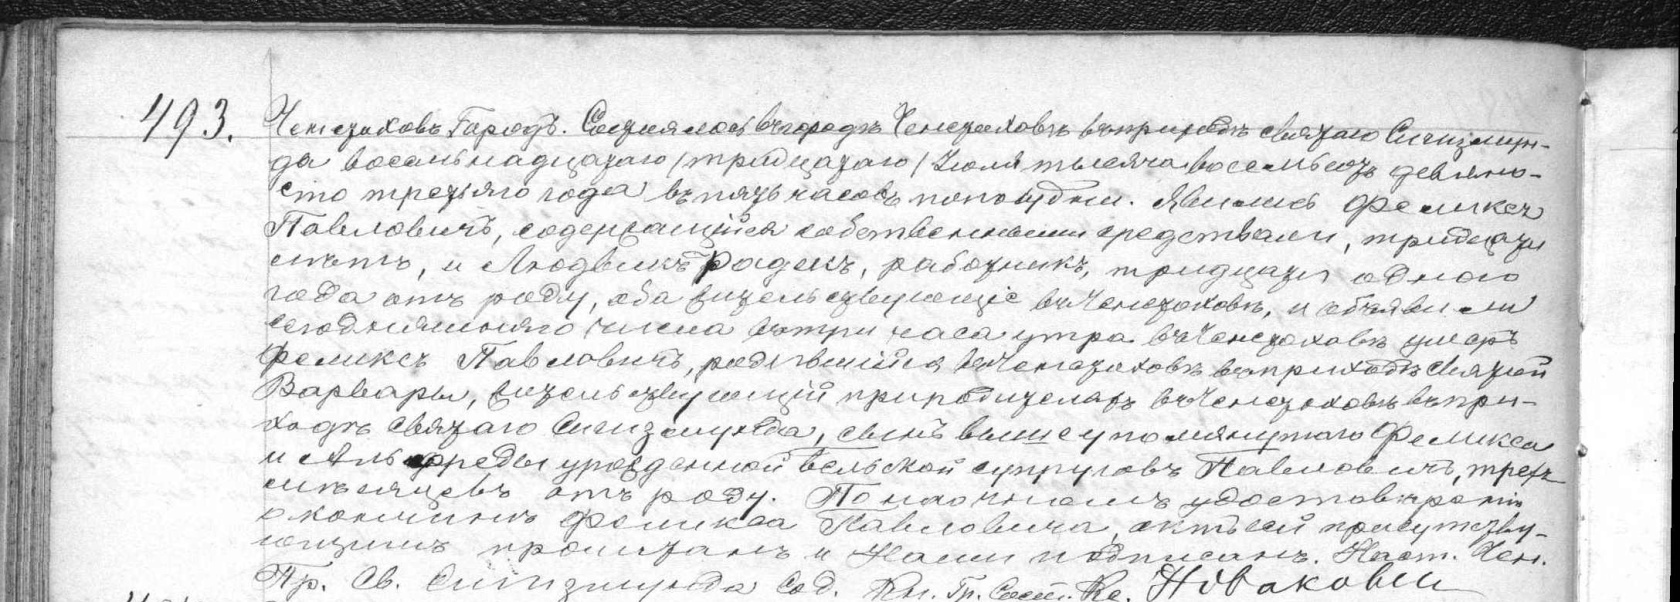 493.
Ченстоховъ Городъ. Состоялось въ городѣ Ченстоховѣ въ приходѣ святаго Сигизмун-
да восемьнадцатаго /тридцатаго/ Іюля тысяча восемьсотъ девяно-
сто третьяго года въ пять часовъ пополудни. Явились Феликсъ
Павловичъ, содержащійся собственными средствами, тридцати
лѣтъ, и Людвикъ Радекъ, работникъ, тридцати одного
года отъ роду, оба жительствующіе въ Ченстоховѣ, и объявили
сегодняшняго числа въ три часа утра въ Ченстоховѣ умеръ
Феликсъ Павловичъ, родившійся въ Ченстоховѣ въ приходѣ Святой
Варвары, жительствующій при родителяхъ въ Ченстоховѣ въ при-
ходѣ святаго Сигизмунда, сынъ вышеупомянутаго Феликса
и Альфреды урожденной Бельской супруговъ Павловичъ, трехъ
мѣсяцевъ отъ роду. По наочномъ удостовѣреніи
о кончинѣ Феликса Павловича, актъ сей присутству-
ющимъ прочитанъ и Нами подписанъ. Наст. Чен.
Пр. Св. Сигизмунда Сод. Кн. Гр. Сост. Кс. Новаковски